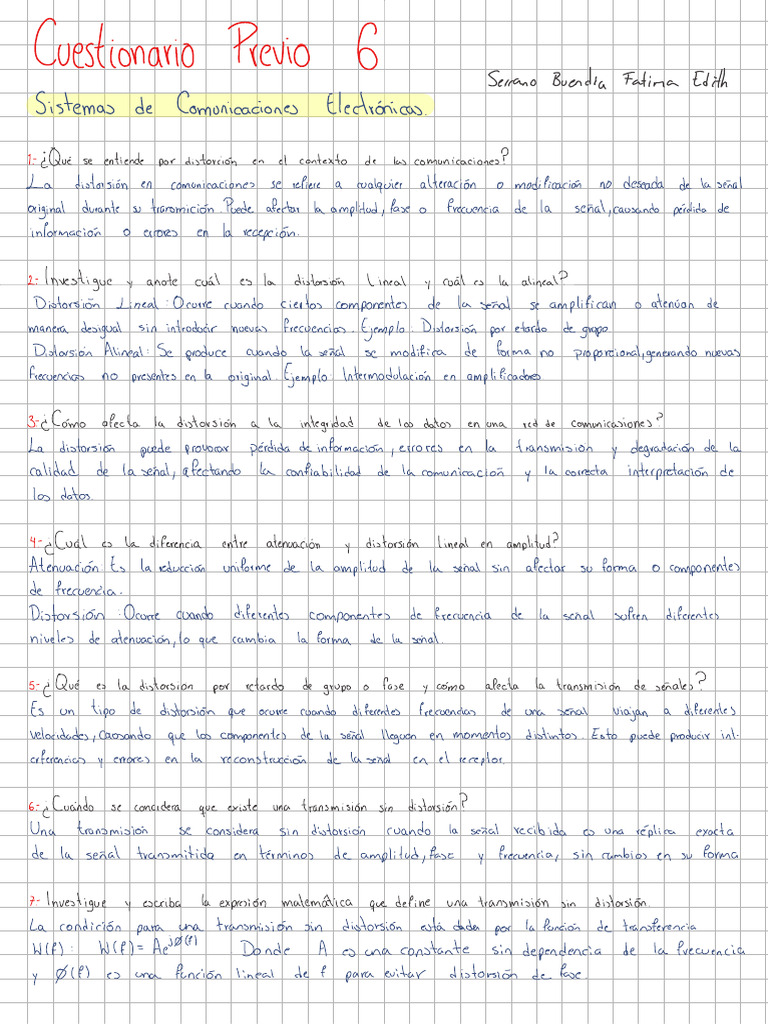 Cuestionario Previo 6
Serrano Buendia Fatima Edith
Sistemas de Comunicaciones Electrónicas.
1-¿Qué se entiende por distorción en el contexto de las comunicaciones?
La distorsión en comunicaciones se refiere a cualquier alteración o modificación no deseada de la señal
original durante su transmición. Puede afectar la amplitud, fase o frecuencia de la señal, causando pérdida de
información o errores en la recepción.
2-Investigue y anote cuál es la distorsión lineal y cuál es la alineal?
Distorsión Lineal: Ocurre cuando ciertos componentes de la señal se amplifican o atenúan de
manera desigual sin introducir nuevas frecuencias. Ejemplo: Distorsión por retardo de grupo
Distorsión Alineal: Se produce cuando la señal se modifica de forma no proporcional, generando nuevas
frecuencias no presentes en la original. Ejemplo: Intermodulación en amplificadores
3-¿Cómo afecta la distorsión a la integridad de los datos en una red de comunicasiones?
La distorsión puede provocar pérdida de información, errores en la transmisión y degradación de la
calidad de la señal, afectando la confiabilidad de la comunicación y la correcta interpretación de
los datos.
4-¿Cuál es la diferencia entre atenuación y distorsión lineal en amplitud?
Atenuación: Es la reducción uniforme de la amplitud de la señal sin afectar su forma o componentes
de frecuencia.
Distorsión: Ocurre cuando diferentes componentes de frecuencia de la señal sufren diferentes
niveles de atenuación, lo que cambia la forma de la señal.
5-¿Qué es la distorsion por retardo de grupo o fase y cómo afecta la transmisión de señales?
Es un tipo de distorsión que ocurre cuando diferentes frecuencias de una señal viajan a diferentes
velocidades, causando que los componentes de la señal lleguen en momentos distintos. Esto puede producir int-
erferencias y errores en la reconstrucción de la señal en el receptor.
6-¿Cuándo se concidera que existe una transmisión sin distorsión?
Una transmisión se considera sin distorsión cuando la señal recibida es una réplica exacta
de la señal transmitida en términos de amplitud, fase y frecuencia, sin cambios en su forma
7-Investigue y escriba la expresión matemática que define una transmisión sin distorsión.
La condición para una transmisión sin distorsión está dada por la función de transferencia
W(f): W(f)=Ae^jØ(f) Donde A es una constante sin dependencia de la frecuencia
y Ø(f) es una función lineal de f para evitar distorsión de fase.